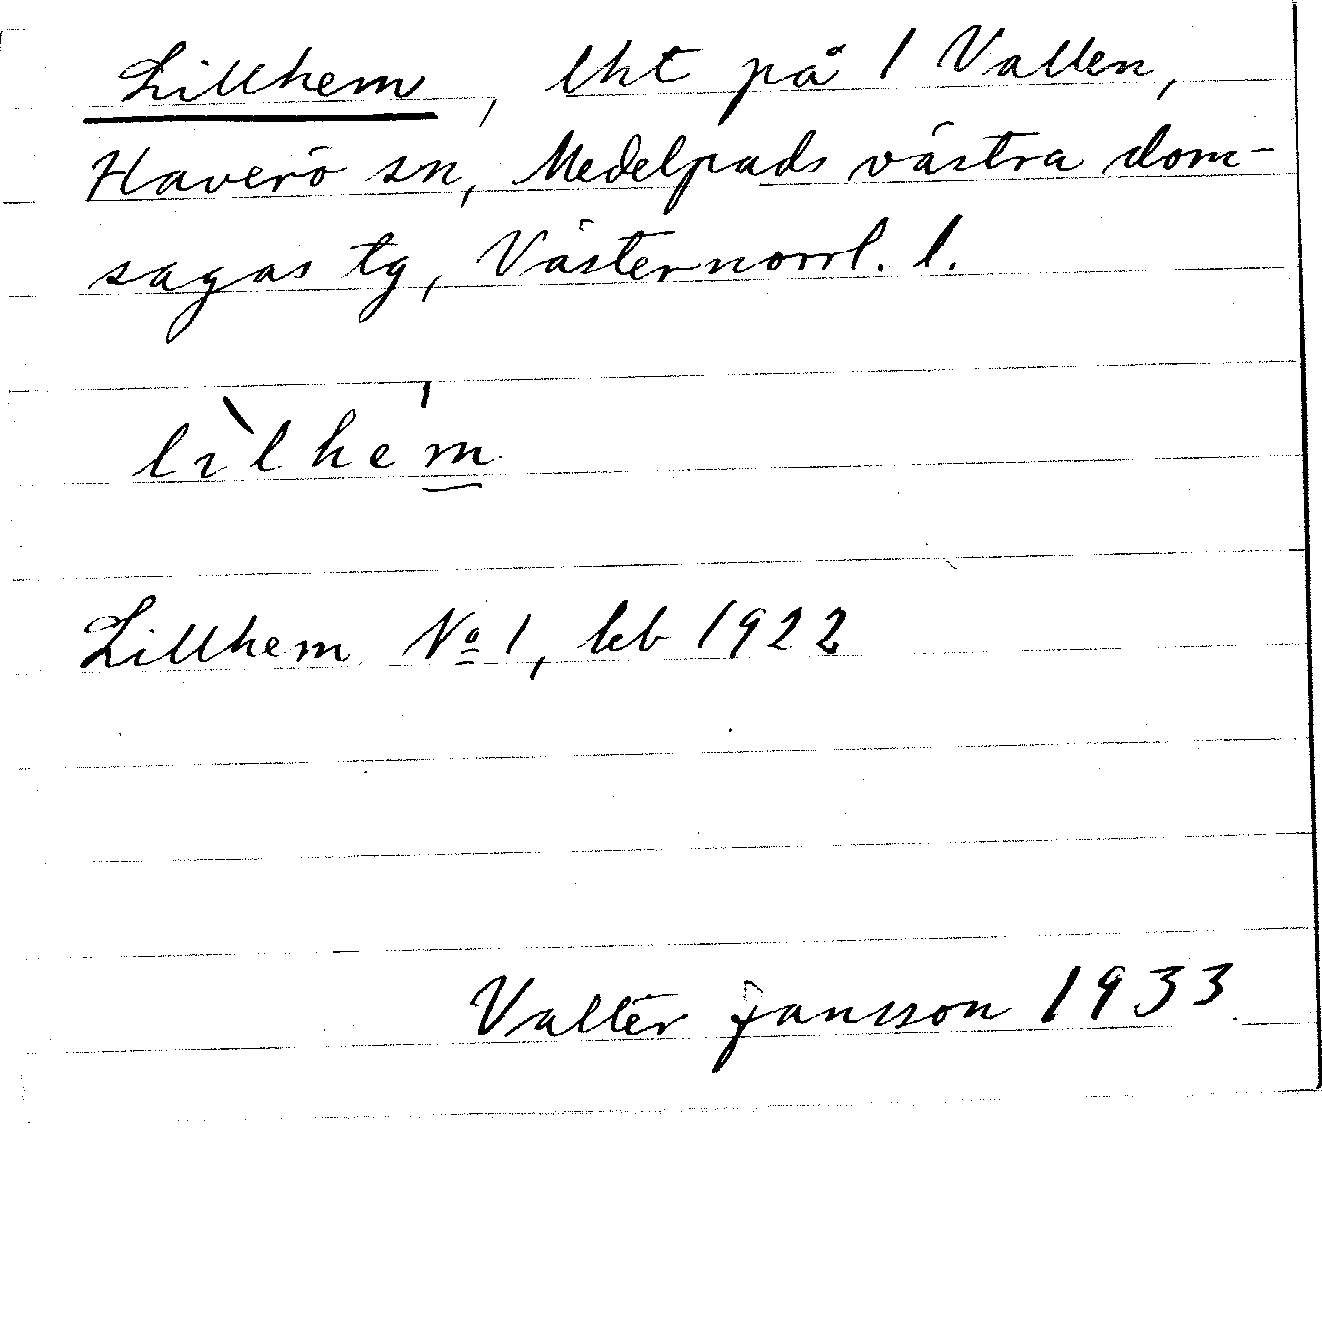 Lillhem, lht på 1 Vallen,
Haverö sn, Medelpads västra dom-
sagas tg, Västernorrl. l.
lìlhe'm
Lillhem No 1, leb 1922
Valter Jansson 1933